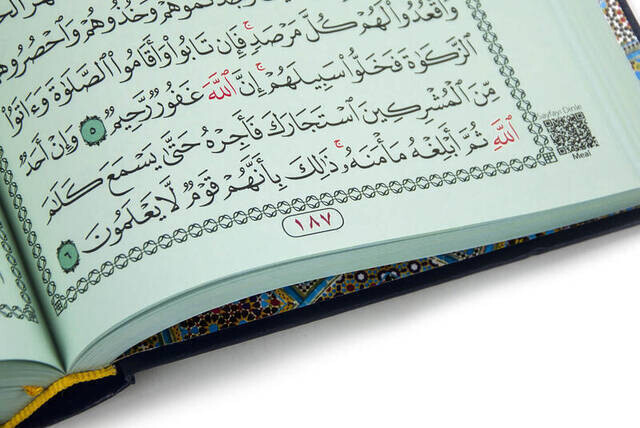 وَخُذُوهُمْ وَٱحْصُرُوهُمْ
وَٱقْعُدُوا۟ لَهُمْ كُلَّ مَرْصَدٍ ۚ فَإِن تَابُوا۟ وَأَقَامُوا۟ ٱلصَّلَوٰةَ وَءَاتَوُا۟
ٱلزَّكَوٰةَ فَخَلُّوا۟ سَبِيلَهُمْ ۚ إِنَّ ٱللَّهَ غَفُورٌ رَّحِيمٌ ٥ وَإِنْ أَحَدٌ
مِّنَ ٱلْمُشْرِكِينَ ٱسْتَجَارَكَ فَأَجِرْهُ حَتَّىٰ يَسْمَعَ كَلَٰمَ
ٱللَّهِ ثُمَّ أَبْلِغْهُ مَأْمَنَهُۥ ۚ ذَٰلِكَ بِأَنَّهُمْ قَوْمٌ لَّا يَعْلَمُونَ ٦
١٨٧
Sayfayı Dinle
Meal